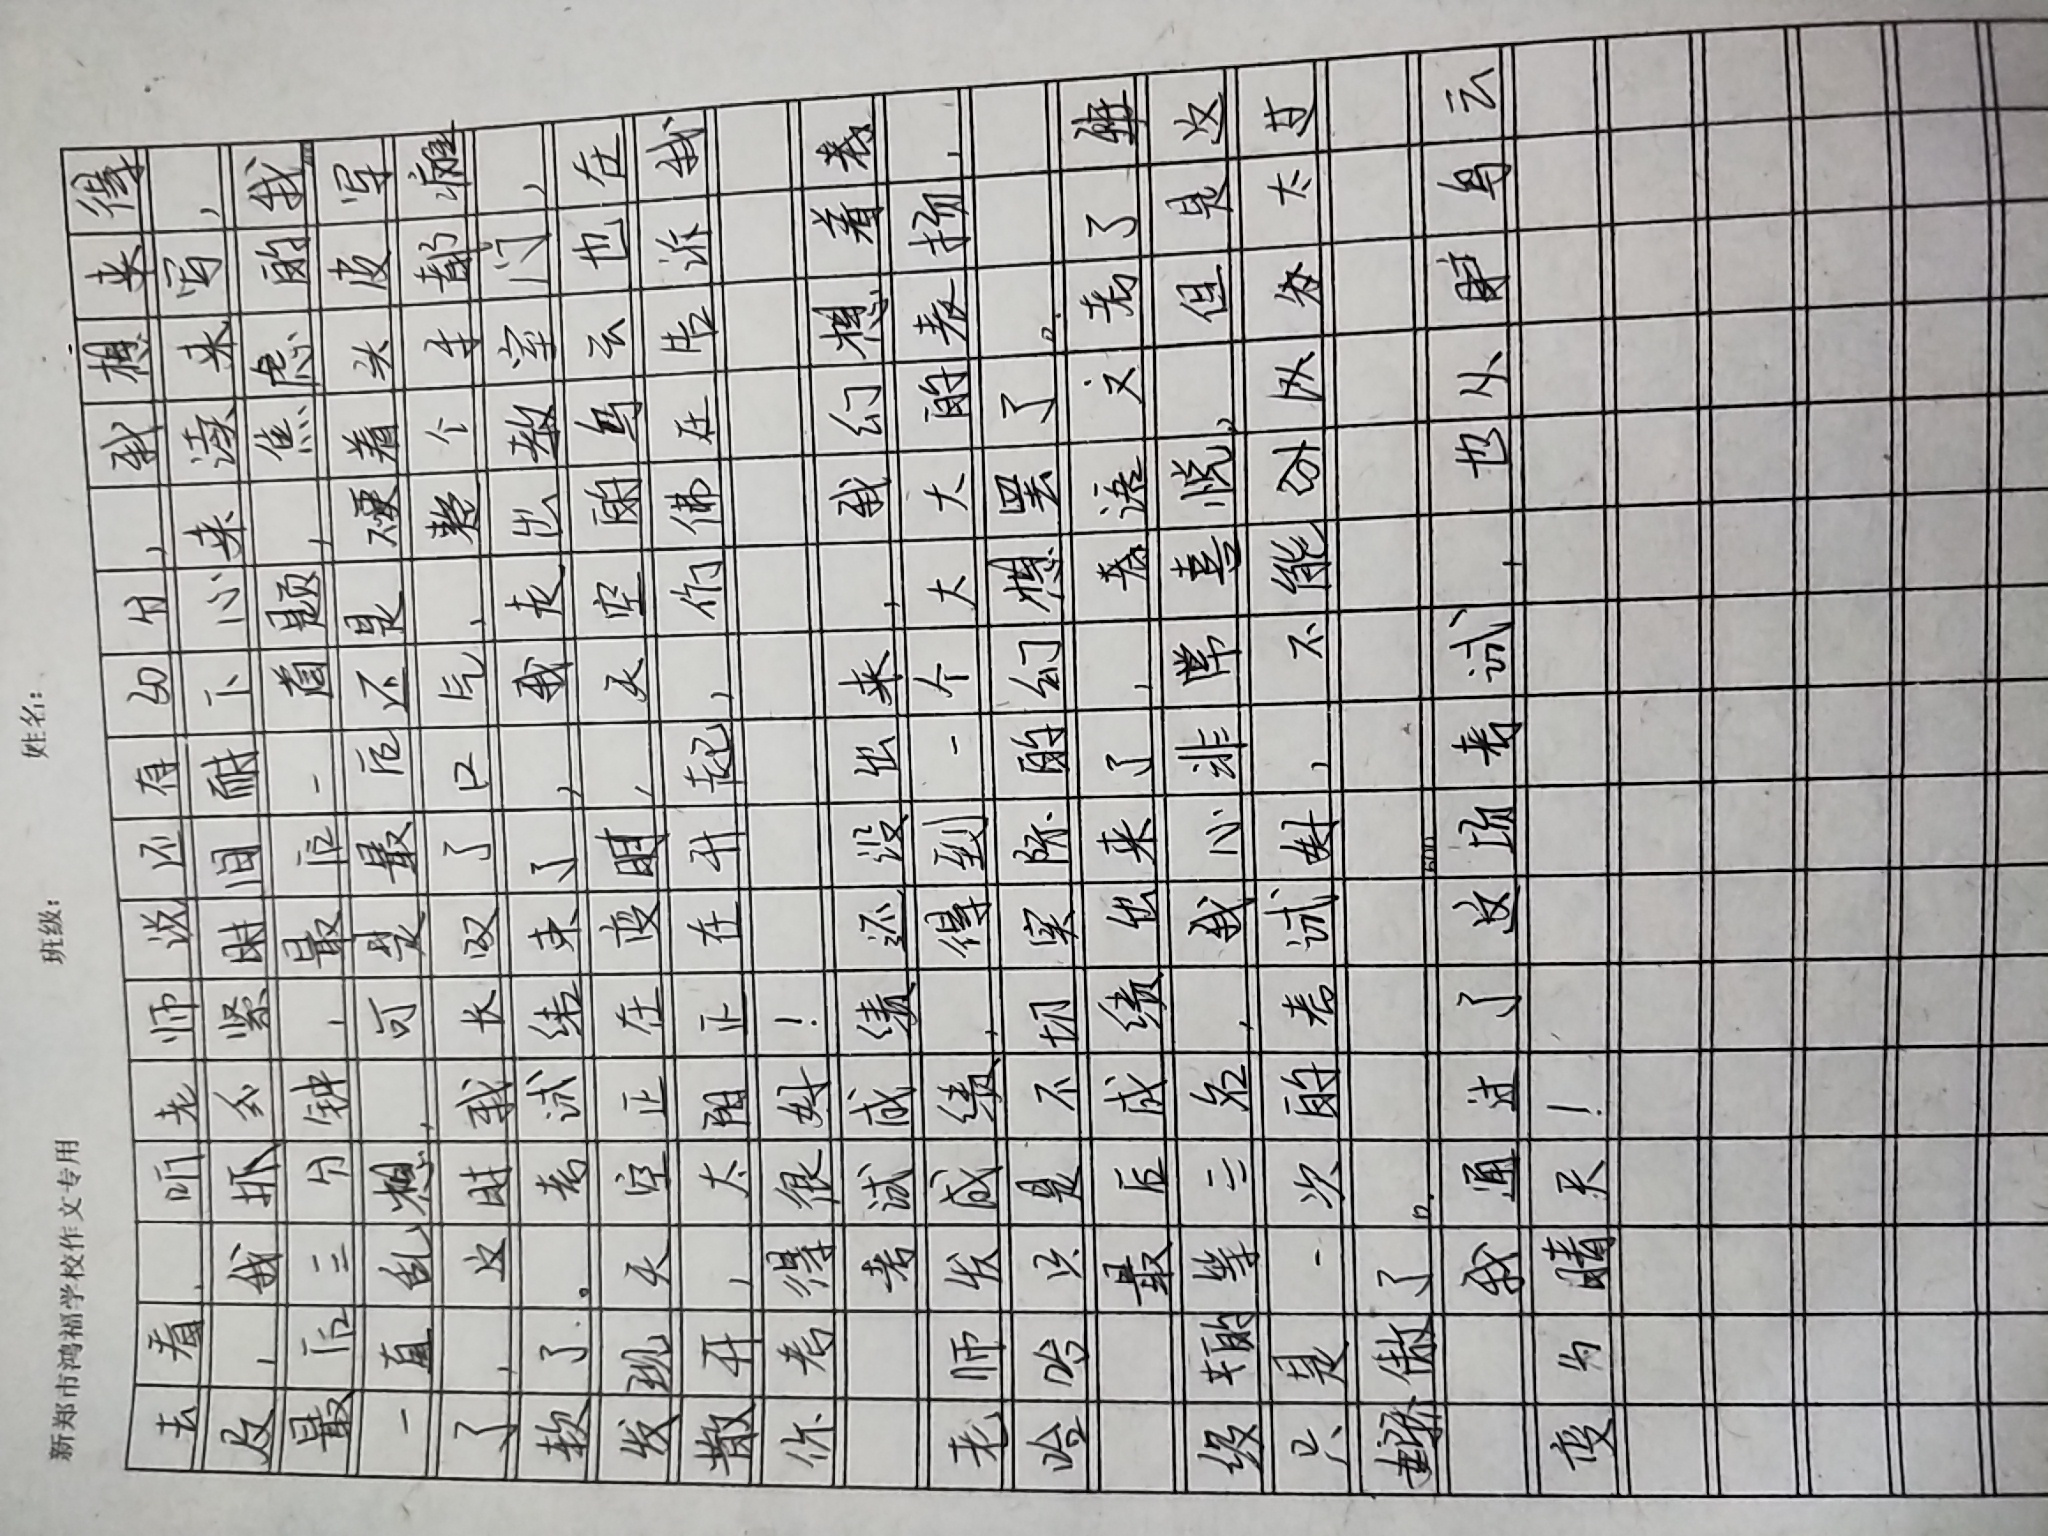 新郑市鸿福学校作文专用 班级： 姓名：
去看，听老师说还有60分，我想来得
及，我抓紧时间耐下心来读来写，
最后三分钟，最后一道题，焦虑的我
一直乱想，可是最后还是硬着头皮写
了，这时我长叹了口气，整个手都瘫
软了。考试结束了，我走出教室门，
发现天空正在变晴，天空的乌云也在
散开，太阳正在升起，仿佛在告诉我
你考得很好！
考试成绩还没出来，我幻想着老
老师发成绩，得到一个大大的表扬，
哈哈只是不切实际的幻想罢了。
最后成绩出来了，语文考了
级的第三名，我心非常喜悦，但是这
只是一次的考试呀，不能以此为太过
骄傲了。
我通过了这场考试，也从乌云
变为晴天！
600